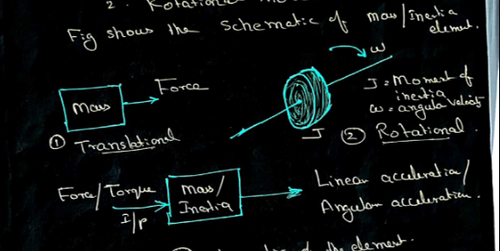 2. Rotational
Fig shows the schematic of mass/Inertia
element.
Mass
Force
ω
J = Moment of
inertia
ω = angular velocity
J
① Translational
② Rotational.
Force/Torque
I/p
Mass/
Inertia
Linear acceleration/
Angular acceleration.
of the element.